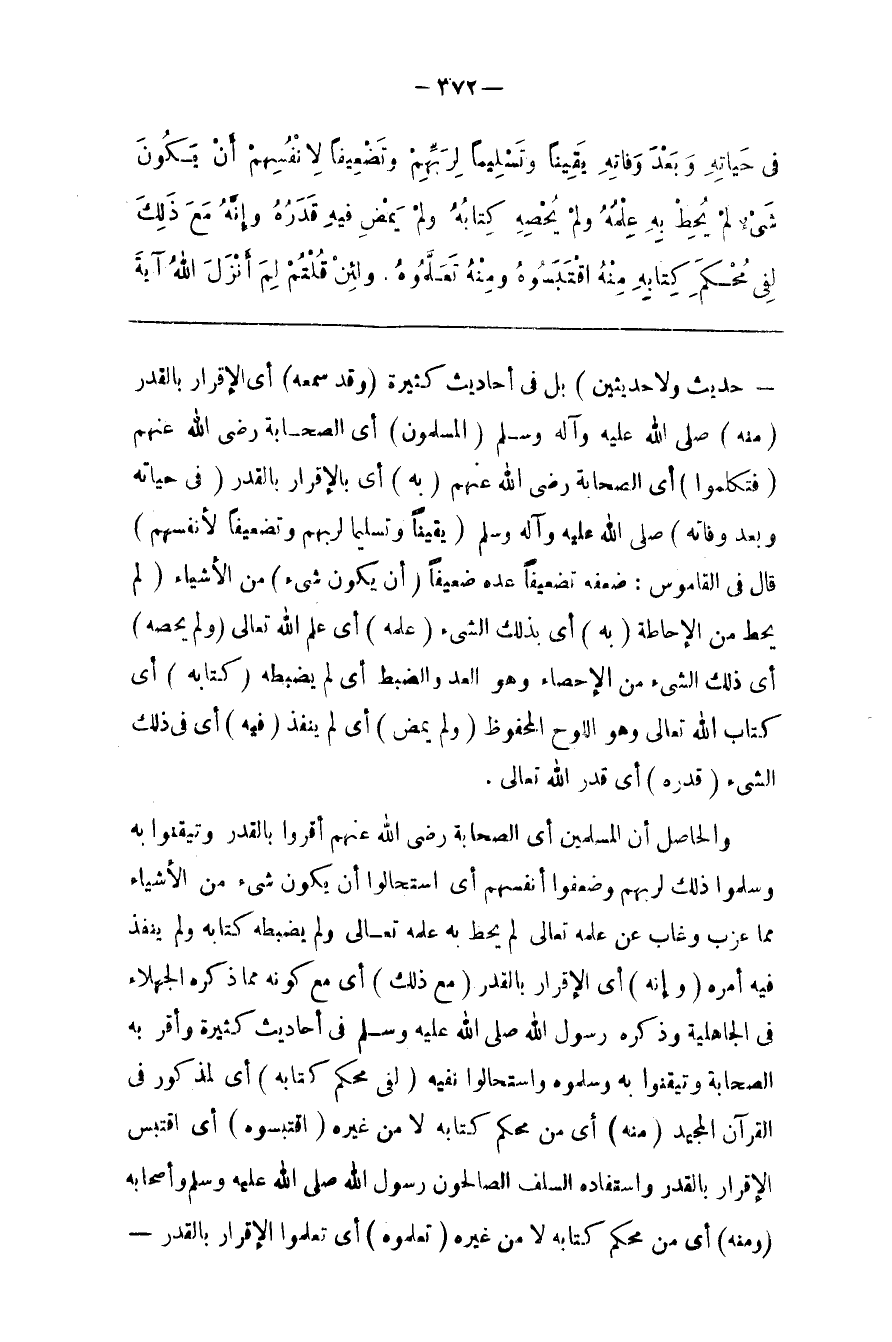 — ٣٧٢ —
فى حَيَاتِهِ وَ بَعْدَ وَفاتِهِ يَقِيناً وتَسْلِيماً لِرَبِّهِمْ وتَضْعِيفاً لِانْفُسِهِمْ أَنْ يَـكُونَ
شَىْءٌ لَمْ يُحِطْ بِهِ عِلْمُهُ ولَمْ يُحْصِهِ كِتابُهُ ولَمْ يَمْضِ فيهِ قَدَرُهُ وإِنَّهُ مَعَ ذَلِكَ
لِفى مُحْـكَمِ كِتابِهِ مِنْهُ اقْتَبَسُوهُ ومِنْهُ تَعَـلَّمُوهُ . ولئِنْ قُلْتُمْ لِمَ أَنْزَلَ اللهُ آيةَ
— حديث ولاحديثين ) بل فى أحاديث كثيرة (وقد سمعه) أى الإقرار بالقدر
( منه ) صلى الله عليه وآله وسـلم ( المسلمون) أى الصحـابة رضى الله عنهم
( فتكلموا ) أى الصحابة رضى الله عنهم ( به ) أى بالإقرار بالقدر ( فى حياته
وبعد وفاته ) صلى الله عليه وآله وسلم ( يقيناً وتسليما لربهم وتضعيفاً لأنفسهم )
قال فى القاموس : ضعفه تضعيفاً عده ضعيفاً ( أن يكون شىء ) من الأشياء ( لم
يحط من الإحاطة ( به ) أى بذلك الشىء ( علمه ) أى علم الله تعالى (ولم يحصه )
أى ذلك الشىء من الإحصاء وهو العد والضبط أى لم يضبطه ( كتابه ) أى
كتاب الله تعالى وهو اللوح المحفوظ ( ولم يمض ) أى لم ينفذ ( فيه ) أى فى ذلك
الشىء ( قدره ) أى قدر الله تعالى .
والحاصل أن المسلمين أى الصحابة رضى الله عنهم أقروا بالقدر وتيقنوا به
وسلموا ذلك لربهم وضعفوا أنفسهم أى استحالوا أن يكون شىء من الأشياء
مما عزب وغاب عن علمه تعالى لم يحط به علمه تعـالى ولم يضبطه كتابه ولم ينفذ
فيه أمره ( وإنه ) أى الإقرار بالقدر ( مع ذلك ) أى مع كونه مما ذكره الجهلاء
فى الجاهلية وذكره رسول الله صلى الله عليه وسـلم فى أحاديث كثيرة وأقر به
الصحابة وتيقنوا به وسلموه واستحالوا نفيه ( لفى محكم كتابه ) أى لمذكور فى
القرآن المجيد ( منه ) أى من محكم كتابه لا من غيره ( اقتبسوه ) أى اقتبس
الإقرار بالقدر واستفاده السلف الصالحون رسول الله صلى الله عليه وسلم وأصحابه
(ومنه) أى من محكم كتابه لا من غيره ( تعلموه ) أى تعلموا الإقرار بالقدر —